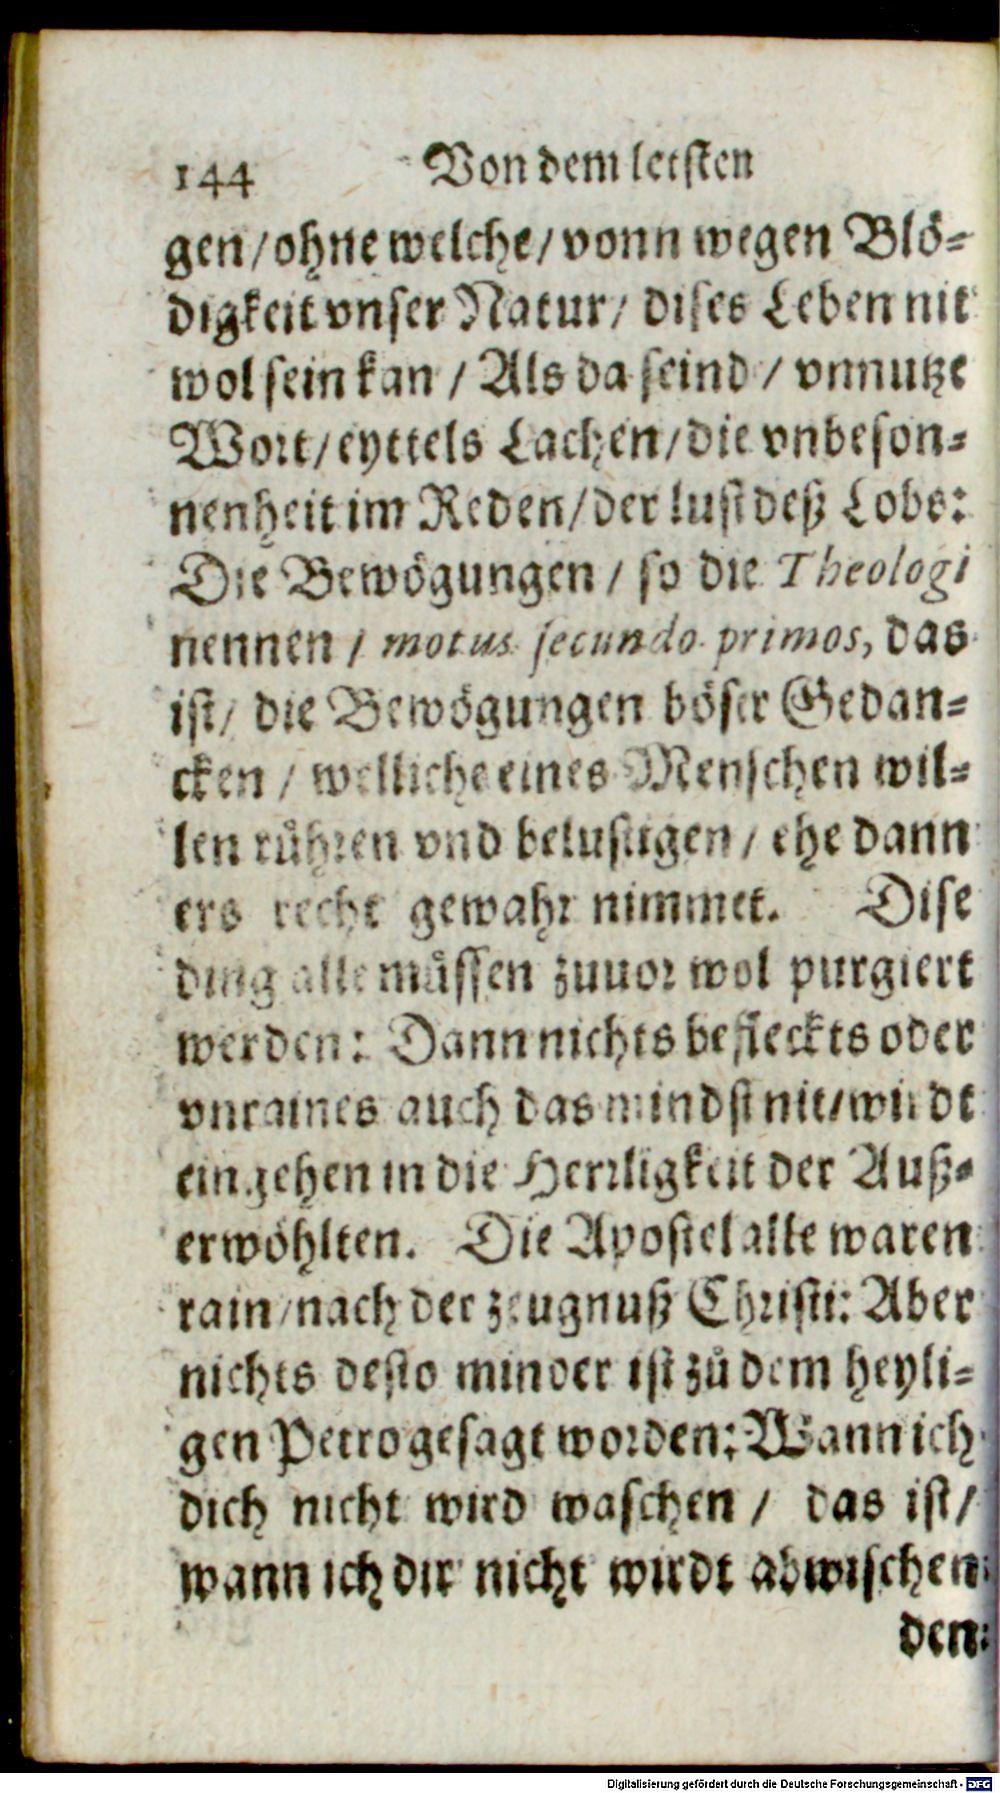 144 Von dem letsten
gen/ohne welche/vonn wegen Blö-
digkeit vnser Natur/ dises Leben nit
wol sein kan / Als da seind / vnnutze
Wort/eyttels Lachen/die vnbeson-
nenheit im Reden/der lust deß Lobs:
Die Bewögungen / so die Theologi
nennen / motus secundo primos, das
ist/ die Bewögungen böser Gedan-
cken / welliche eines Menschen wil-
len rühren vnd belustigen / ehe dann
ers recht gewahr nimmet. Dise
ding alle müssen zuuor wol purgiert
werden: Dann nichts beflеckts oder
vnraines auch das mindst nit/wirdt
eingehen in die Herrligkeit der Auß-
erwöhlten. Die Apostel alle waren
rain/nach der zeugnuß Christi: Aber
nichts desto minder ist zů dem heyli-
gen Petro gesagt worden: Wann ich
dich nicht wird waschen / das ist/
wann ich dir nicht wirdt abwischen
den
Digitalisierung gefördert durch die Deutsche Forschungsgemeinschaft - DFG